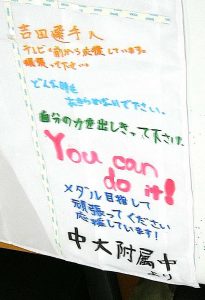 吉田選手へ
テレビの前から応援しています。
頑張って下さい
どんな時も
あきらめないで下さい。
自分の力を出しきって下さい!!
You can
do it!
メダル目指して
頑張ってください
応援しています!
中大附属中
より